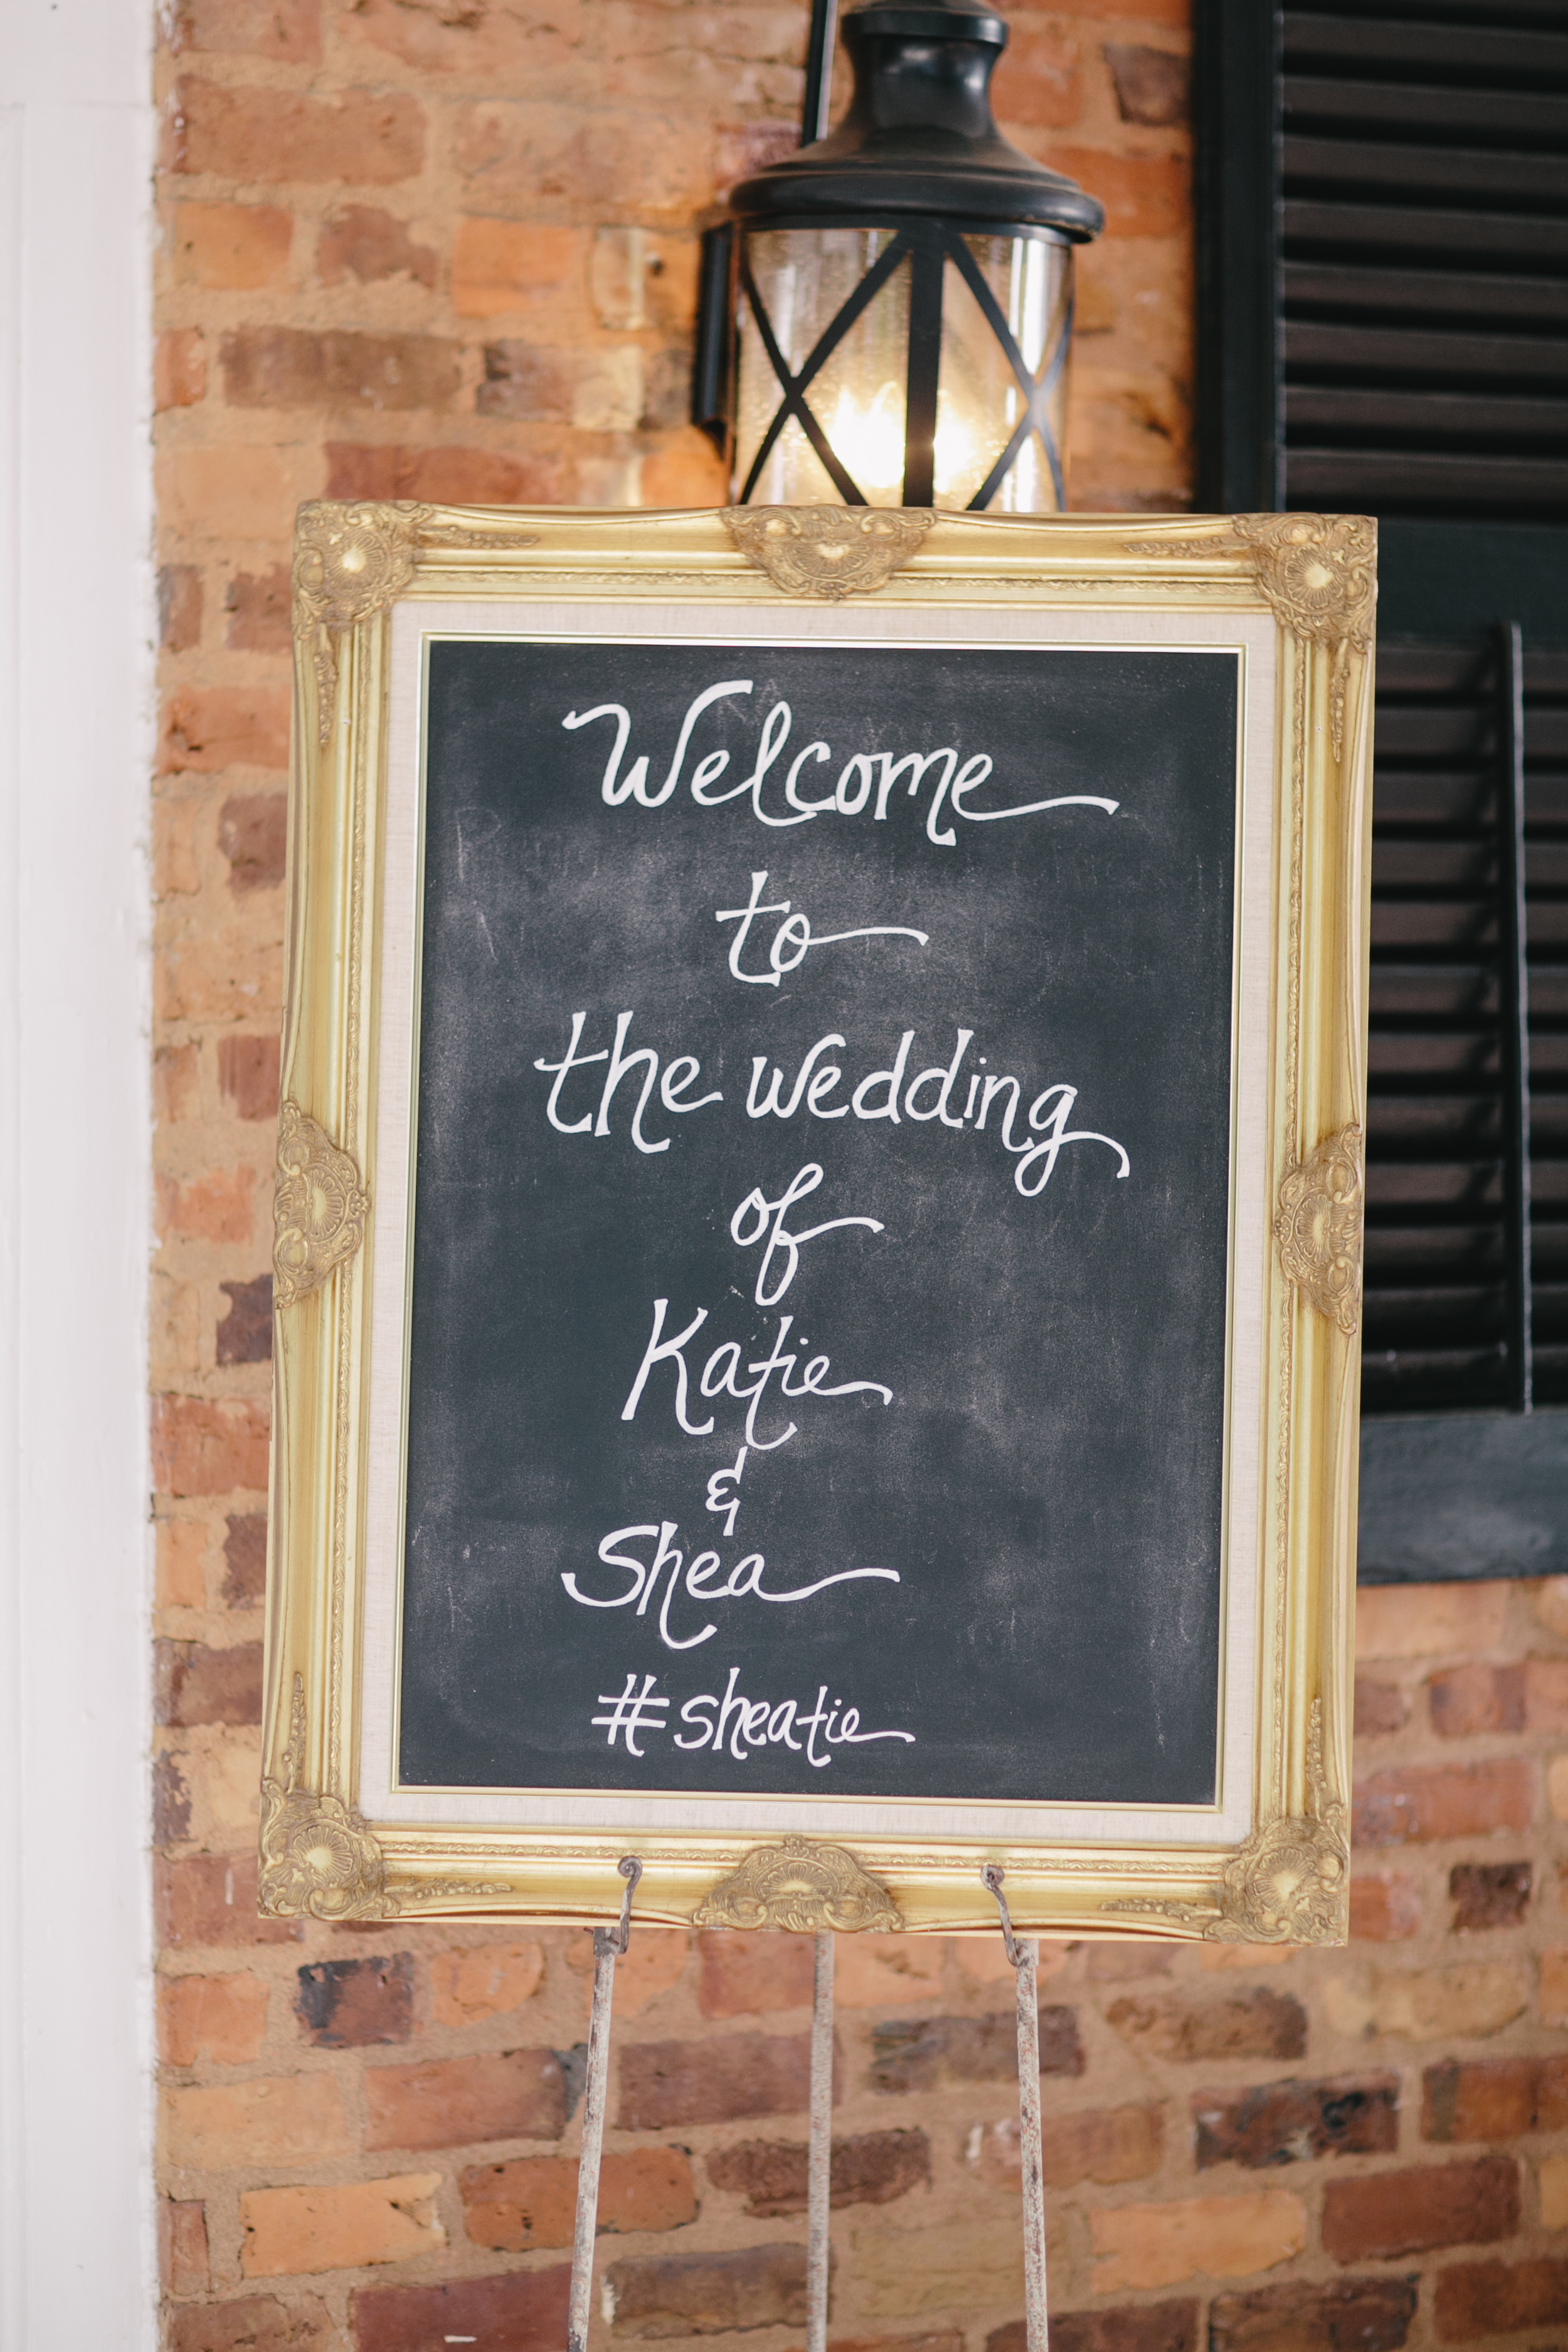 Welcome
to
the wedding
of
Katie
&
Shea
#sheatie